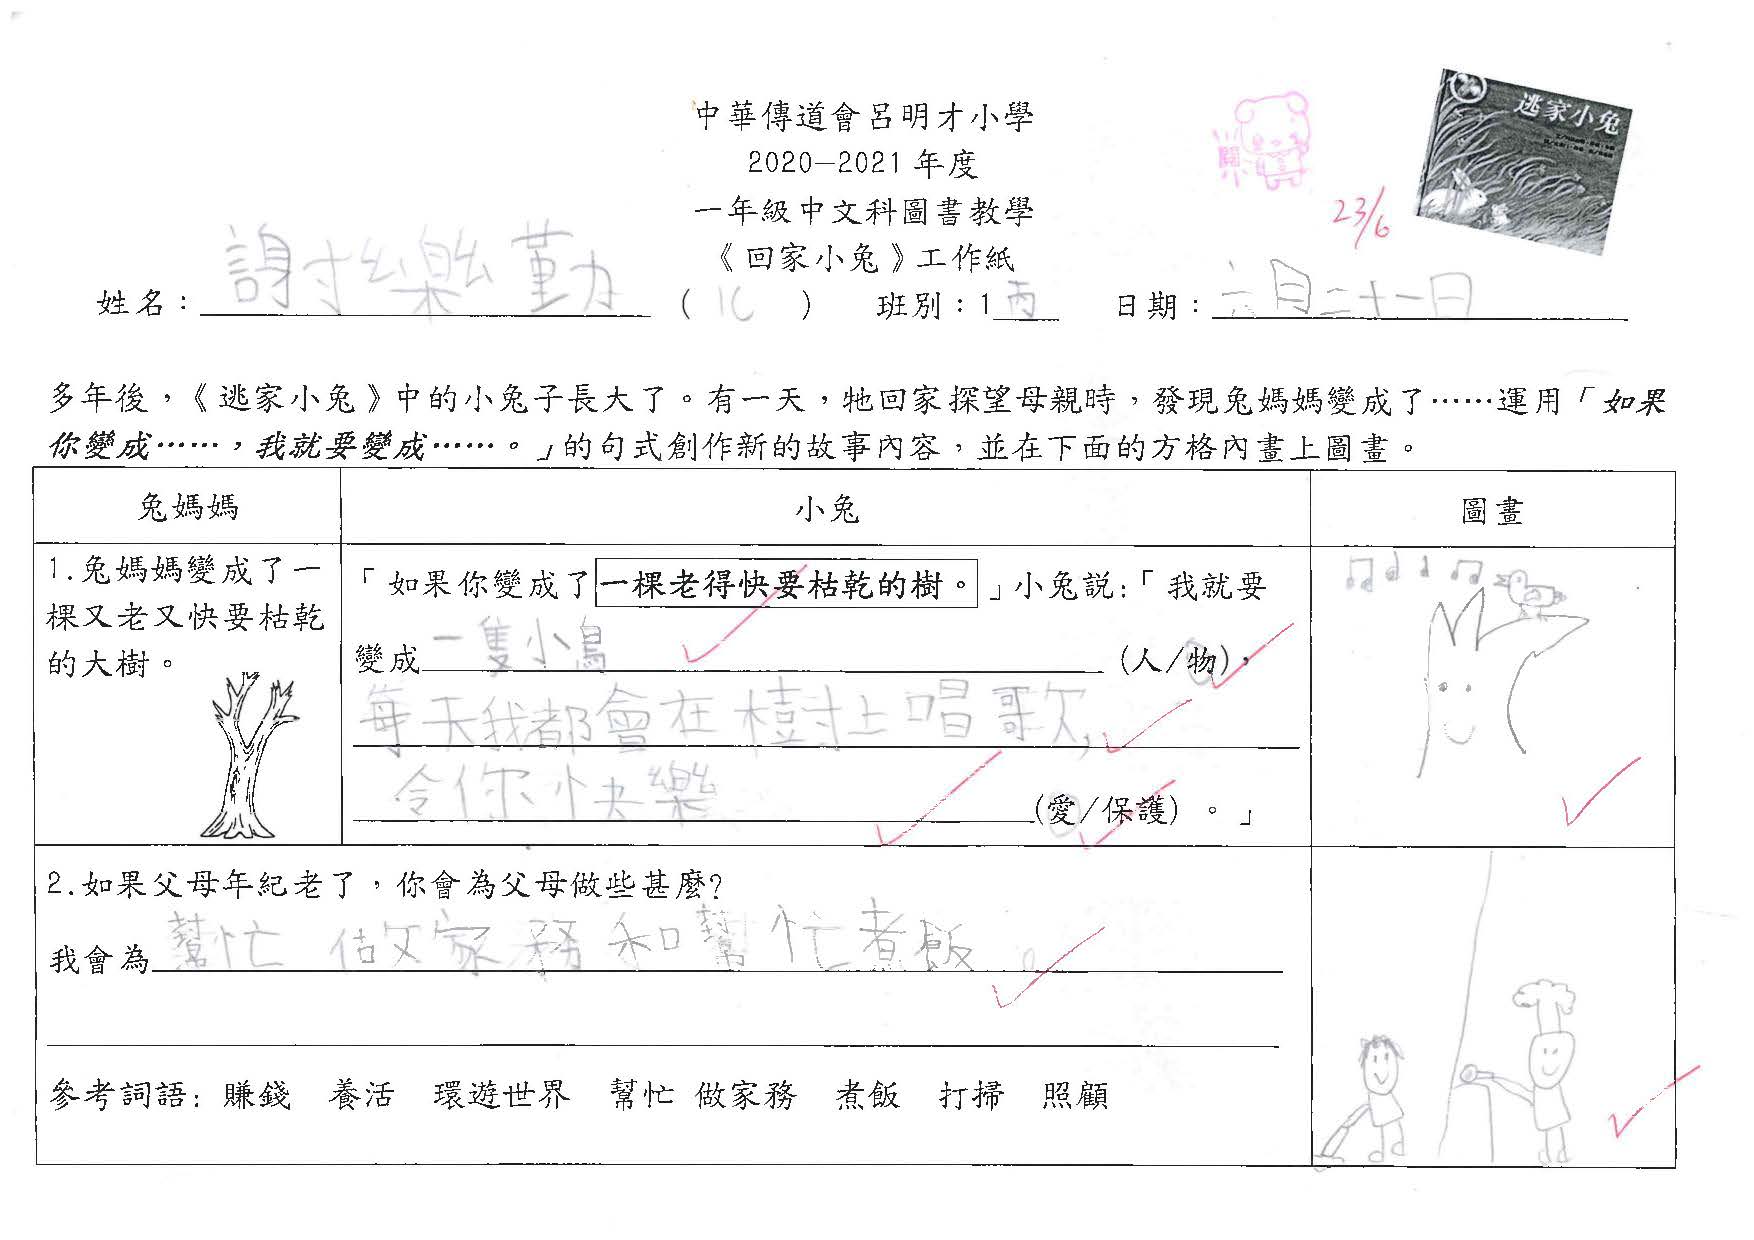 中華傳道會呂明才小學
2020-2021年度
一年級中文科圖書教學
《回家小兔》工作紙
逃家小兔
閱
23/6
姓名：謝樂勤 ( ) 班別：1丙 日期：六月二十一日
多年後，《逃家小兔》中的小兔子長大了。有一天，牠回家探望母親時，發現兔媽媽變成了……運用「如果
你變成……，我就要變成……。」的句式創作新的故事內容，並在下面的方格內畫上圖畫。
兔媽媽 小兔 圖畫
1.兔媽媽變成了一
棵又老又快要枯乾
的大樹。
「如果你變成了一棵老得快要枯乾的樹。」小兔説:「我就要
變成一隻小鳥(人/物)，
每天我都會在樹上唱歌,
令你快樂(愛/保護)。」
2.如果父母年紀老了，你會為父母做些甚麼?
我會為幫忙做家務和幫忙煮飯。
參考詞語: 賺錢 養活 環遊世界 幫忙 做家務 煮飯 打掃 照顧